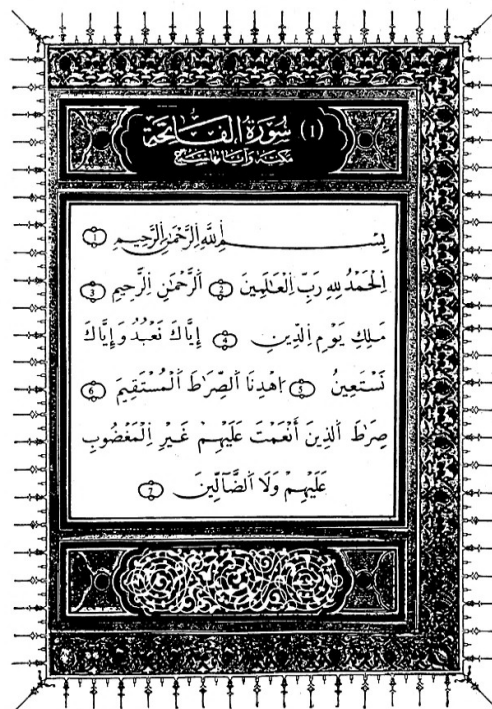 (١) سُورَةُ الفَاتِحَةِ
مكيّة وآياتها سبع
بِسْمِ اللَّهِ الرَّحْمَٰنِ الرَّحِيمِ ١
الْحَمْدُ لِلَّهِ رَبِّ الْعَٰلَمِينَ ٢ الرَّحْمَٰنِ الرَّحِيمِ ٣
مَٰلِكِ يَوْمِ الدِّينِ ٤ إِيَّاكَ نَعْبُدُ وَإِيَّاكَ
نَسْتَعِينُ ٥ اهْدِنَا الصِّرَٰطَ الْمُسْتَقِيمَ ٦
صِرَٰطَ الَّذِينَ أَنْعَمْتَ عَلَيْهِمْ غَيْرِ الْمَغْضُوبِ
عَلَيْهِمْ وَلَا الضَّآلِّينَ ٧